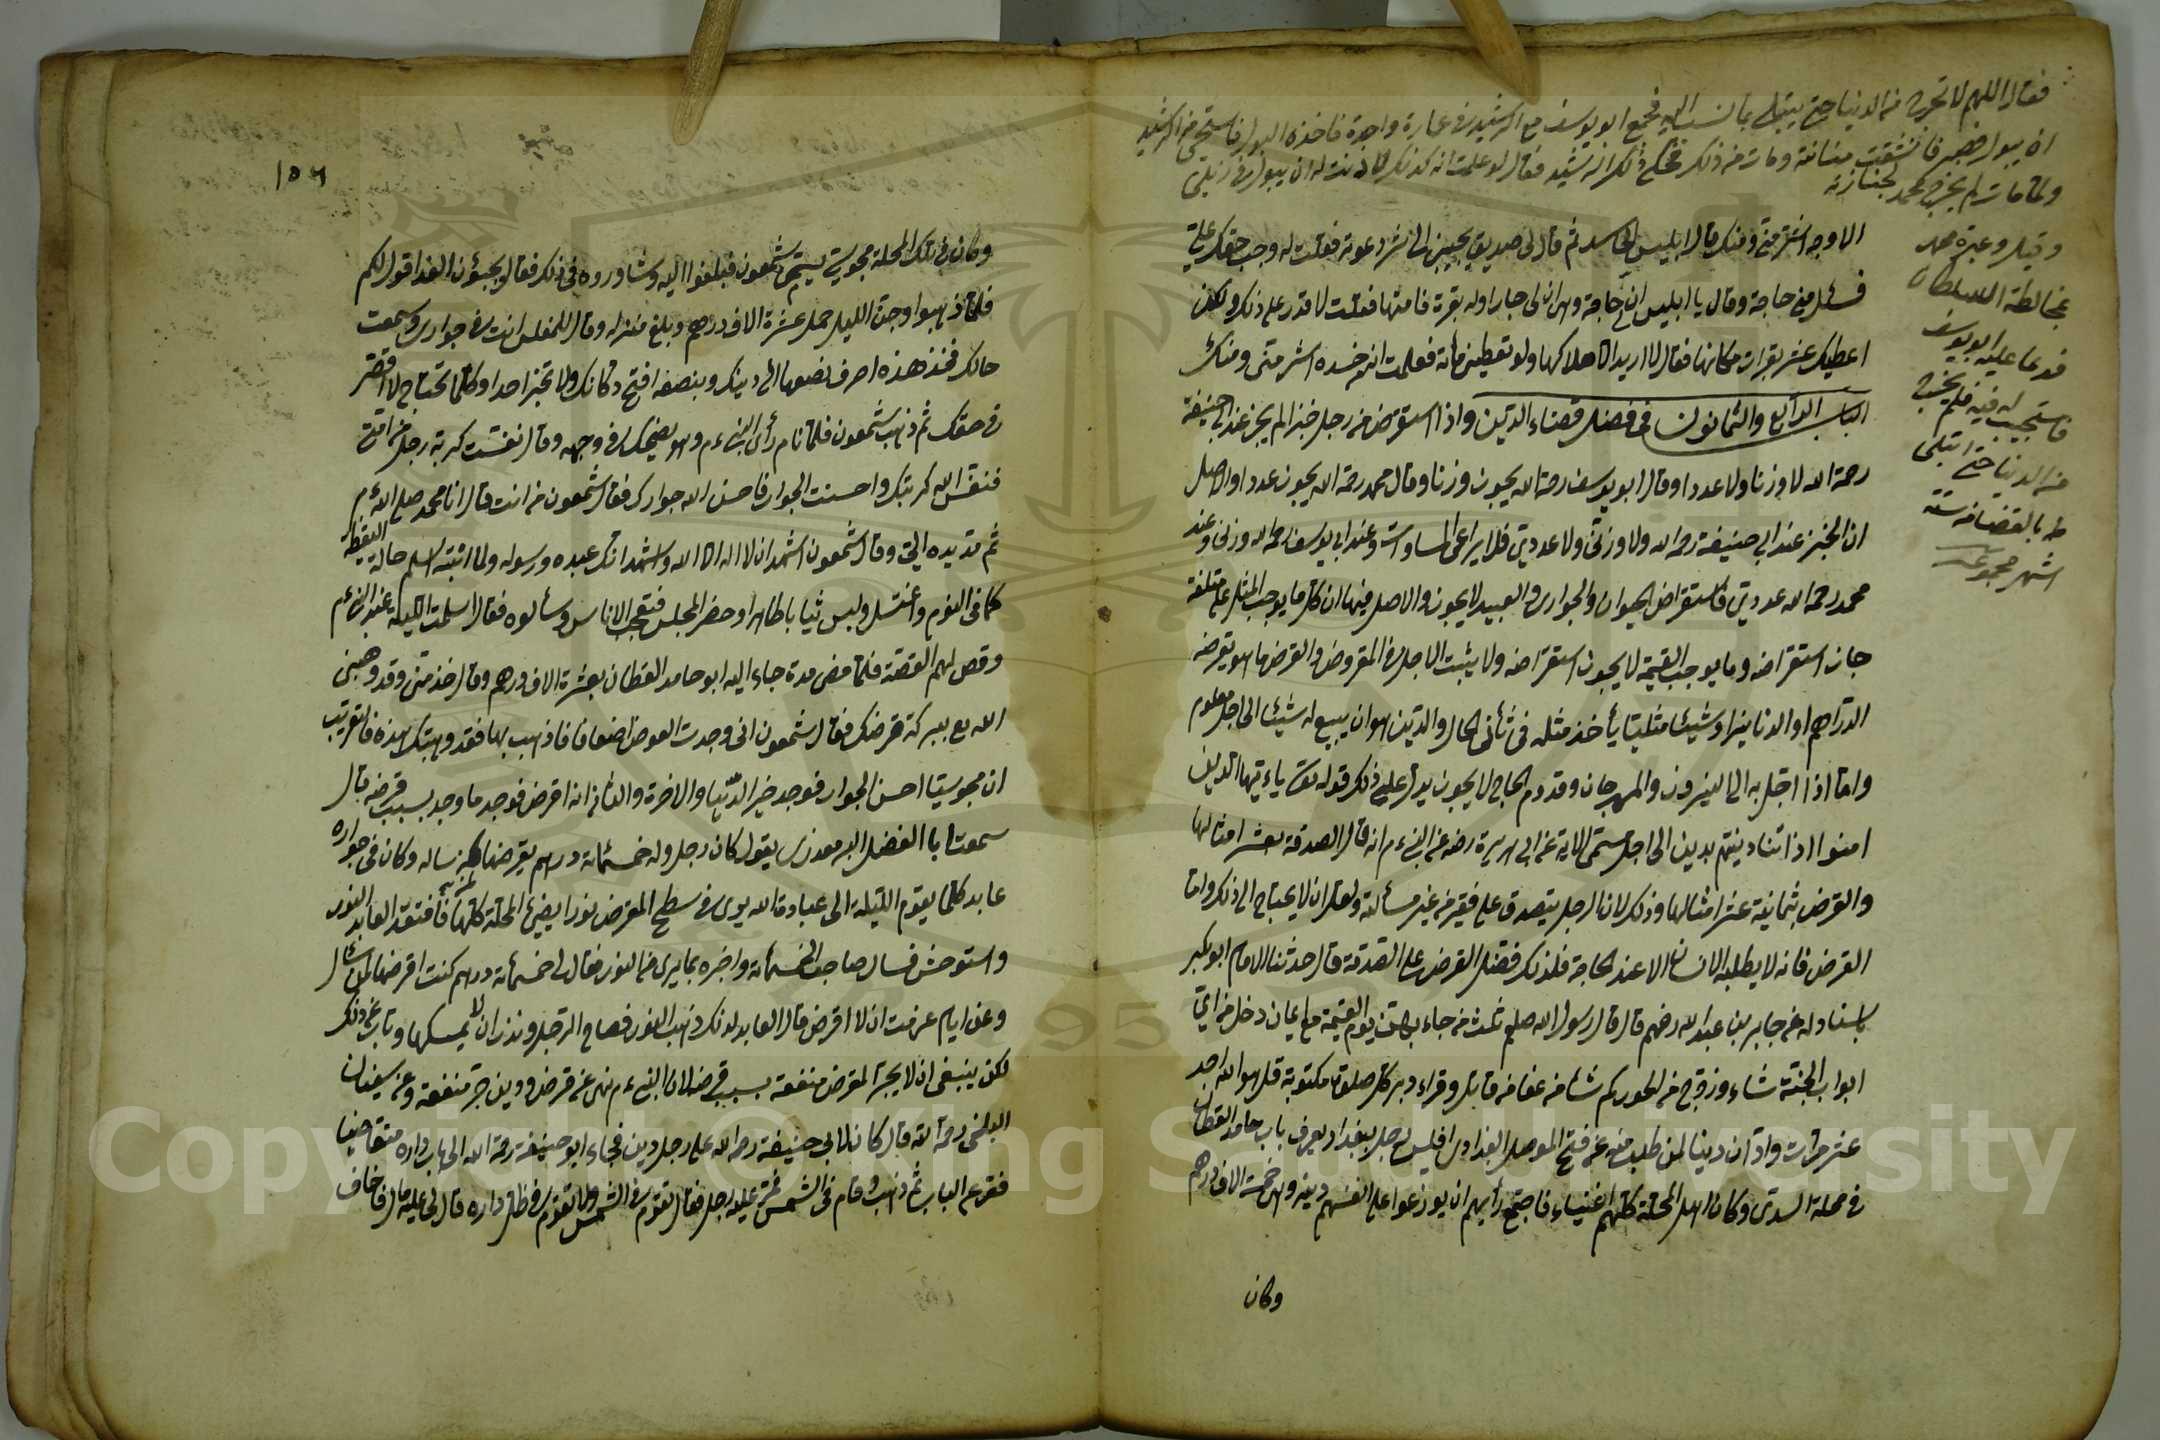 فقال اللهم لا تخرجه من الدنيا حتى يبتلى بما نسب اليه فجمع ابو يوسف مع الرشيد في عمارة واحدة فاخذه البول فاستحيى من الرشيد
ان يبول فصبر فانشقت مثانته ومات من ذلك فحكي ذلك الرشيد فقال لو علمت انه كذلك لاذنت له ان يبول في
ولما مات لم يخرج محمد لجنازته
وقيل وعيره محمد
بمخالطة السلطان
فدعا عليه ابو يوسف
فاستجيب له فيه فلم يخرج
من الدنيا حتى ابتلى
به بالقضاء ستة
اشهر مجموعه
الا وجد اشر مني ومنك قال ابليس الحاسد ثم قال لي صديق يجيبني الى شر دعوته فقلت له وجب حقك علي
فسئل مني حاجة وقال يا ابليس ان لي حاجة وهي ان لي جارا وله بقرة فامتها فقلت لا اقدر على ذلك ولكن
اعطيك عشر بقرات مكانها فقال لا اريد الا هلاكها ولو تعطيني مائة فعلمت انه حسده اشر مني ومنك
الباب الرابع والثمانون في فضل قضاء الدين واذا استقرض من رجل خبزا لم يجز عند ابي حنيفة
رحمة الله لا وزنا ولا عددا وقال ابو يوسف رحمة الله يجوز وزنا وقال محمد رحمة الله يجوز عددا والاصل
ان الخبز عند ابي حنيفة رحمه الله ولا وزني ولا عددي فلا يراعى المساوات وعند ابي يوسف رحمه الله وزني وعند
محمد رحمه الله عددي فاستقراض الحيوان والجواري والعبيد لا يجوز والاصل فيها ان كل ما يوجب المثل على متلفه
جاز استقراضه وما يوجب القيمة لا يجوز استقراضه ولا يثبت الاجل في المقروض والقرض ما هو يقرضه
الدراهم او الدنانير او شيئا مثليا يأخذ مثله في ثاني الحال والدين هو ان يبيع له شيئا الى اجل معلوم
واما اذا اجل به الى النيروز والمهرجان وقدوم الحاج لا يجوز يدل على ذلك قوله تع يا ءيها الذين
امنوا اذا تداينتم بدين الى اجل مسمى الاية عن ابي هريرة رضه عن النبي ءم انه قال الصدقة بعشر امثالها
والقرض بثمانية عشر امثالها وذلك لان الرجل يتصدق على فقير من غير مسألته ولعل ان لا يحتاج الى ذلك واما
القرض فانه لا يطلبه الانسان الا عند الحاجة فلذلك فضل القرض على الصدقة قال حدثنا الامام ابو بكر
باسناد له عن جابر بن عبد الله رضهم قال قال رسول الله صلعم ثلث من جاء بهن يوم القيمة مع ايمان دخل من اي
ابواب الجنة شاء وزوج من الحور كم شاء من عفا من قاتل وقراء دبر كل صلوة مكتوبة قل هو الله احد
عشر مرات وادّى دينا لمن طلب منه عن فتح الموصلي البغدادي افليس رجل ببغداد يعرف باب حامد القطان
في محلة السدى وكان اهل المحلة كلهم اغنياء فاجتمع رأيهم ان يوزعوا على انفسهم دينه وهي خمسة الاف درهم
وكان
١٥٦
وكان في تلك المحلة مجوسي يسمى شمعون فبلغوا اليه وشاوروه في ذلك فقال يجيؤن الغد اقول لكم
فلما ذهبوا وجن الليل حمل عشرة الاف درهم وبلغ منزله وقال للمفلس انت في جواري وسمعت
حالك فخذ هذه اصرف نصفها الى دينك وبنصفه افتح دكانك ولا تخبر احدا وكلما تحتاج لا اقصر
في حقك ثم ذهب شمعون فلما نام رأى النبي ءم وهو يضحك في وجهه وقال نفست كربة رجل من امتي
فنفس الله كربتك واحسنت الجوار فاحسن الله جوارك فقال شمعون من انت قال انا محمد صلى الله ءم
ثم مد يده الي وقال شمعون اشهد ان لا اله الا الله واشهد انك عبده ورسوله ولما انتبه اسلم حالة اليقظة
كما في النوم واغتسل ولبس ثيابا طاهرا وحضر المجلس فتعجب الاناس وسألوه فقال اسلمت الليلة عند النبي ءم
وقص لهم القصة فلما مضى مدة جاء اليه ابو حامد القطان بعشرة الاف درهم وقال خذ مني وقد وهبني
الله تع ببركة قرضك فقال شمعون اني وجدت العوض اضعافا فاذهب بها فقد وهبتك هذه فالترتيب
ان مجوسيا احسن الجوار فوجد خير الدنيا والاخرة والثاني انه اقرض فوجد ما وجد بسبب قرضه قال
سمعت ابا الفضل البرمعدزي يقول كان رجل وله خمسمائة درهم يقرضها لمن ساله وكان في جواره
عابد كلما يقوم الليلة الى عبادة الله يرى في سطح المقرض نورا يضيئ المحلة كلها فافتقد العابد النور
واستوحش فسال صاحب الخمسمائة واخبره بما يرى من النور فقال لي خمسمائة درهم كنت اقرضها لمن سال
وعن ايام عزمت ان لا اقرض قال العابد لذلك ذهب النور فصاح الرجل ونذر ان لا يمسكها وتاب عن ذلك
لكن ينبغي ان لا يجر المقرض منفعة بسبب قرضه لان النبي ءم نهى عن قرض ودين جر منفعة وعن سفيان
البلخي رحمة الله قال كان لابي حنيفة رحمه الله على رجل دين فجاء ابو حنيفة رحمة الله الى باب داره متقاضيا
فقرع الباب ثم ذهب وقام في الشمس فمر عليه رجل فقال تقوم في الشمس ولا تقوم في ظل داره قال لي عليه مال فاخاف